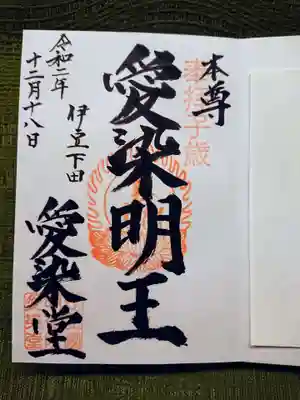 本尊
奉拝子歳
愛染明王
伊豆下田
愛染堂
令和二年
十二月十八日